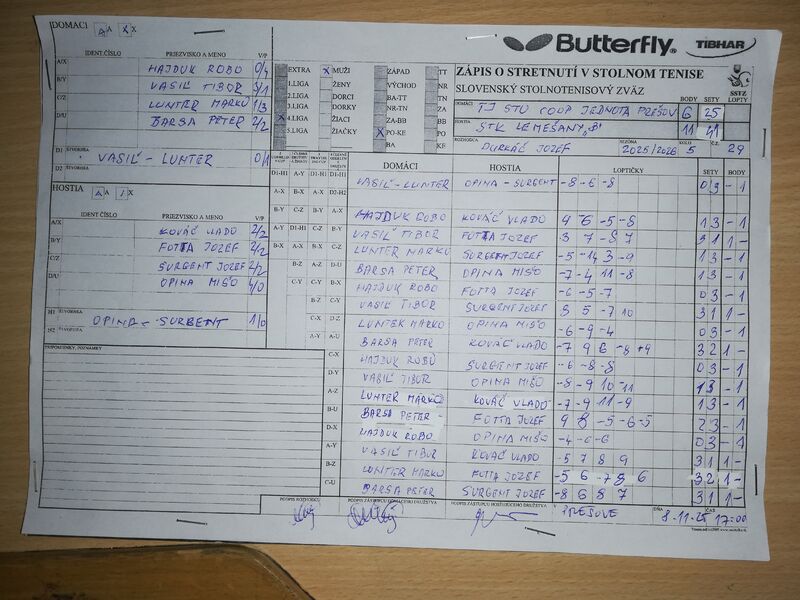 DOMÁCI A A X X
Butterfly® TIBHAR
IDENT.ČÍSLO PRIEZVISKO A MENO V/P
A/X HAJDUK ROBO 0/4
B/Y VASIĽ TIBOR 3/1
C/Z LUNTER MARKO 1/3
D/U BARSA PETER 2/2
ŠTVORHRA
D1 VASIĽ - LUNTER 0/1
D2
EXTRA X MUŽI ZÁPAD TT
1.LIGA ŽENY VÝCHOD NR
2.LIGA DORCI BA-TT TN
3.LIGA DORKY NR-TN ZA
X 4.LIGA ŽIACI ZA-BB BB
5.LIGA ŽIAČKY X PO-KE PO
BA KE
ZÁPIS O STRETNUTÍ V STOLNOM TENISE
SLOVENSKÝ STOLNOTENISOVÝ ZVÄZ
SSTZ
BODY SETY LOPTY
DOMÁCI TJ STU COOP JEDNOTA PREŠOV 6 25
HOSTIA STK LEMEŠANY „B" 11 41
ROZHODCA DURKÁČ JOZEF SEZÓNA 2025/2026 KOLO 5 Č.Z. 29
HOSTIA A A X
IDENT ČÍSLO PRIEZVISKO A MENO V/P
A/X KOVÁČ VLADO 2/2
B/Y FOTTA JOZEF 2/2
C/Z SURGENT JOZEF 2/2
D/U OPINA MIŠO 4/0
ŠTVORHRA
H1 OPINA - SURGENT 1/0
H2
PRIPOMIENKY, POZNÁMKY
DOMÁCI HOSTIA LOPTIČKY SETY BODY
D1-H1 A-Y D1-H1 D1-H1 VASIĽ - LUNTER OPINA - SURGENT -8 -6 -8 0 3 - 1
A-X B-X A-X D2-H2
B-Y C-Z B-Y A-X HAJDUK ROBO KOVÁČ VLADO 9 -6 -5 -8 1 3 - 1
A-Y D1-H1 C-Z B-Y VASIĽ TIBOR FOTTA JOZEF 3 7 -8 7 3 1 1 -
B-X A-X B-X C-Z LUNTER MARKO SURGENT JOZEF -5 -14 3 -9 1 3 - 1
B-Z A-Z D-U BARSA PETER OPINA MIŠO -7 -4 11 -8 1 3 - 1
HAJDUK ROBO FOTTA JOZEF -6 -5 -7 0 3 - 1
VASIĽ TIBOR SURGENT JOZEF 3 1 1 -
LUNTER MARKO OPINA MIŠO -6 -9 -4 0 3 - 1
BARSA PETER KOVÁČ VLADO -7 9 6 -8 +9 3 2 1 -
C-X HAJDUK ROBO SURGENT JOZEF -6 -8 -8 0 3 - 1
D-Y VASIĽ TIBOR OPINA MIŠO 1 3 - 1
A-Z LUNTER MARKO KOVÁČ VLADO 1 3 - 1
B-U BARSA PETER FOTTA JOZEF 9 8 -5 -6 -5 2 3 - 1
D-X HAJDUK ROBO OPINA MIŠO -4 -6 -6 0 3 - 1
A-Y VASIĽ TIBOR KOVÁČ VLADO -5 7 8 9 3 1 1 -
B-Z LUNTER MARKO FOTTA JOZEF -5 6 -7 8 6 3 2 1 -
C-U BARSA PETER SURGENT JOZEF -8 6 8 7 3 1 1 -
PODPIS ROZHODCU PODPIS ZÁSTUPCU DOMÁCEHO DRUŽSTVA PODPIS ZÁSTUPCU HOSŤUJÚCEHO DRUŽSTVA V PREŠOVE DŇA 8.11.25 ČAS 17:00